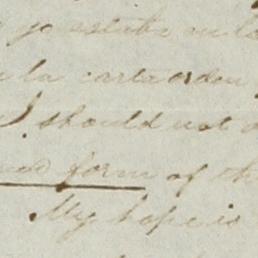 yo estaba en la
la carta orden
I should not
form of the
My hope is